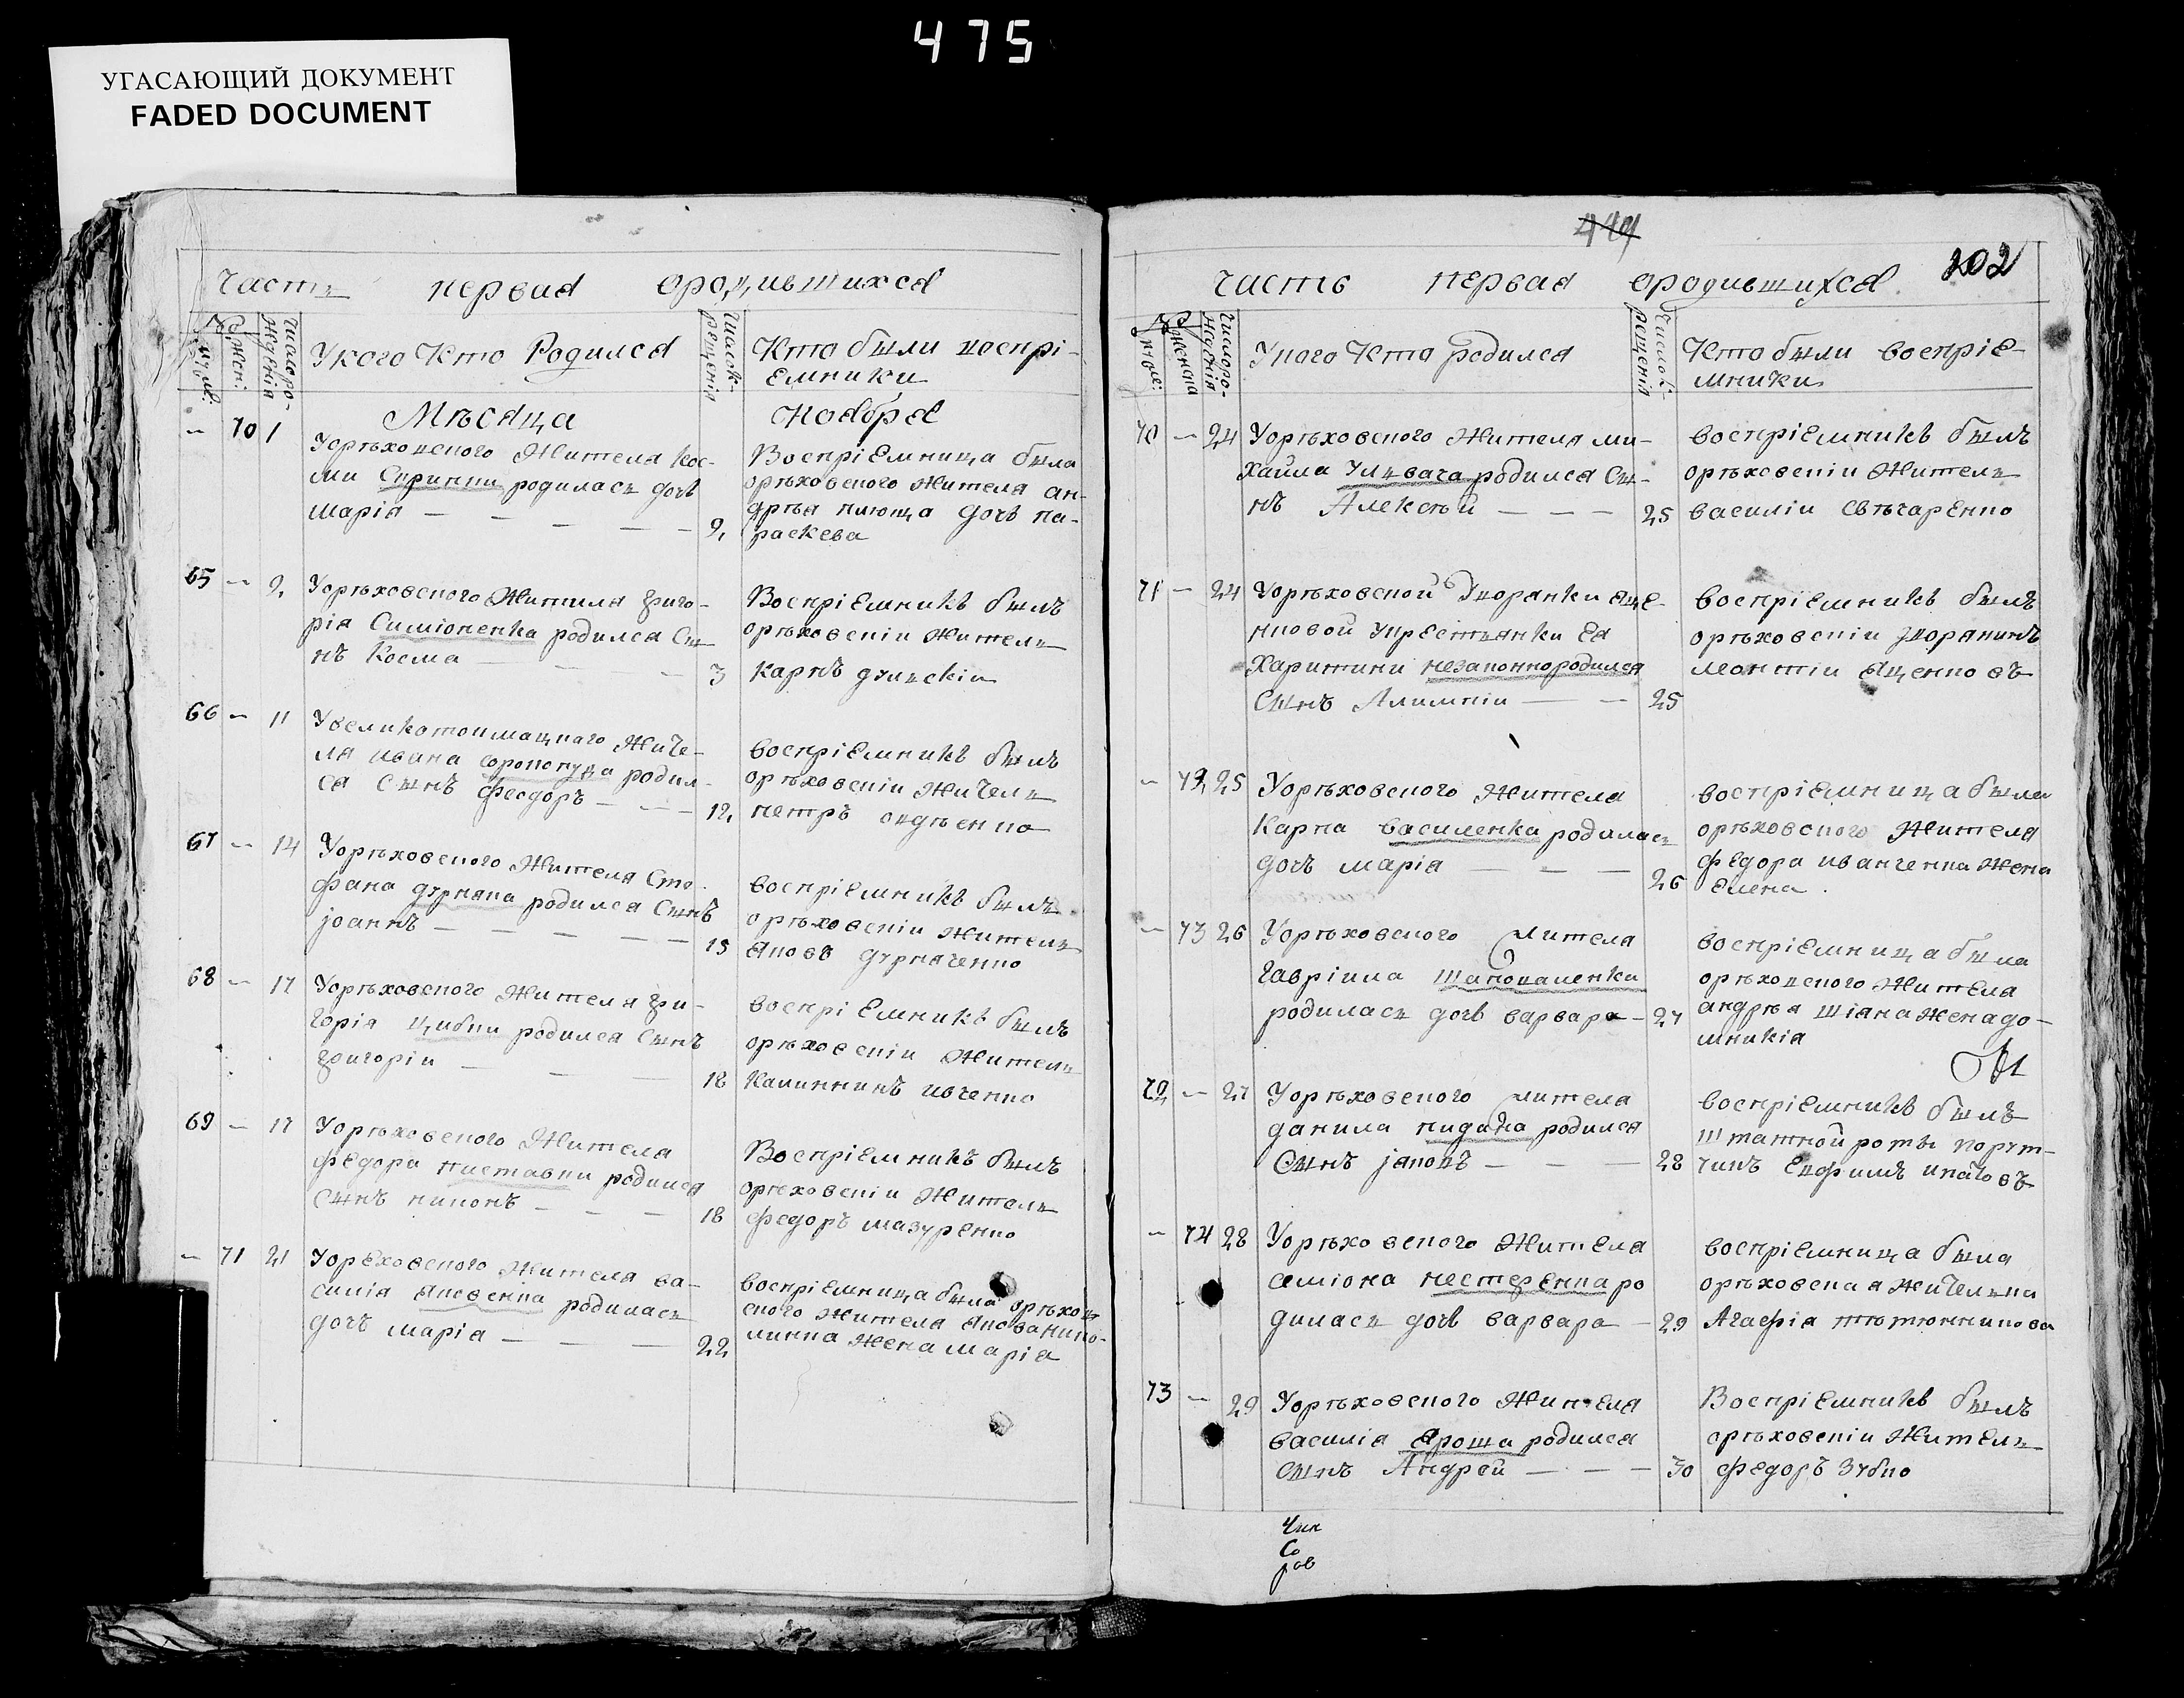 475
УГАСАЮЩИЙ ДОКУМЕНТ
FADED DOCUMENT
Часть первая ородившихся
Укого Кто Родился
Кто были воспрі-
емники
Мѣсяца Ноября
70 1
Уорѣховского Жителя Кос-
ми родилась дочь
Марія — — — — —
2
Воспріемница была
орѣховского Жителя ан-
дрѣя дочь па-
раскева
65 — 2
Уорѣховского Жителя григо-
рія Симіоненка родился Сы-
нъ Косма — — —
3
Воспріемникъ былъ
орѣховскій Житель
карпъ
66 — 11
Увеликотокмацкаго Жите-
ля ивана родил-
ся Сынъ Феодоръ — — —
12
воспріемникъ былъ
орѣховскій Житель
петръ
67 — 14
Уорѣховского Жителя Сте-
фана дурняка родился Сынъ
Іоаннъ — — — — —
15
воспріемникъ былъ
орѣховскій Житель
яковъ дурначенко
68 — 17
Уорѣховского Жителя гри-
горія цибки родился Сынъ
григорій — — —
18
воспріемникъ былъ
орѣховскій Житель
Калинникъ ивченко
69 — 17
Уорѣховского Жителя
Федора родился
Сынъ никонъ — — —
18
Воспріемникъ былъ
орѣховскій Житель
Федоръ мазуренко
— 71 21
Уорѣховского Жителя ва-
силія яковенка родилась
дочъ марія — — —
22
воспріемница была орѣхов-
ского Жителя
Жена марія
449
202
Часть первая ородившихся
Укого Кто родился
Кто были воспріе-
мники
70 — 24
Уорѣховского Жителя ми-
хаила родился Сы-
нъ Алексѣй — — —
25
воспріемникъ былъ
орѣховскій Житель
василій свѣчаренко
71 — 24
Уорѣховской дворянки яце-
нковой укрестянки ея
Харитини незаконнородился
Сынъ Алимпій — —
25
воспріемникъ былъ
орѣховскій дворянинъ
леонтій яценковъ
— 72 25
Уорѣховского Жителя
Карпа василенка родилась
дочъ марія — — —
26
воспріемница была
орѣховского Жителя
федора иванченка Жена
елена.
— 73 26
Уорѣховского Жителя
гавріила шаповаленка
родилась дочъ варвара —
27
воспріемница была
орѣховского Жителя
андрѣя шіана Жена до-
мникія
72 — 27
Уорѣховского жителя
данила родился
Сынъ іаковъ — — —
28
воспріемникъ былъ
Штатной роты порут-
чикъ Евфимъ игнатовъ
— 74 28
Уорѣховского Жителя
симіона нестеренка ро
дилась дочъ варвара —
29
воспріемница была
орѣховская Жителька
Агафія тютюнникова
73 — 29
Уорѣховского Жителя
василія яроша родился
сынъ Андрей — — —
30
Воспріемникъ былъ
орѣховскій Житель
федоръ зубко